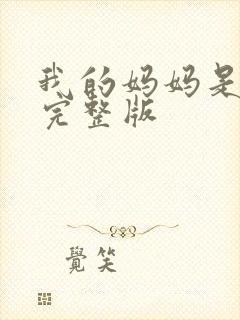 我的妈妈是
完整版
覺笑